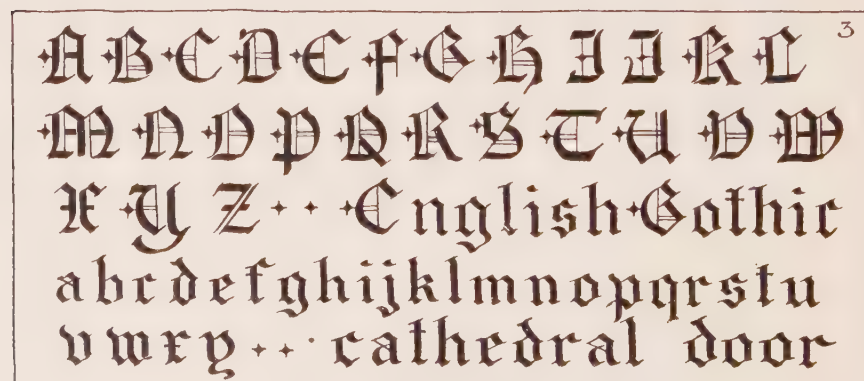 3
A B C D E F G H I J K L
M N O P Q R S T U V W
X Y Z English Gothic
a b c d e f g h i j k l m n o p q r s t u
v w x y cathedral door